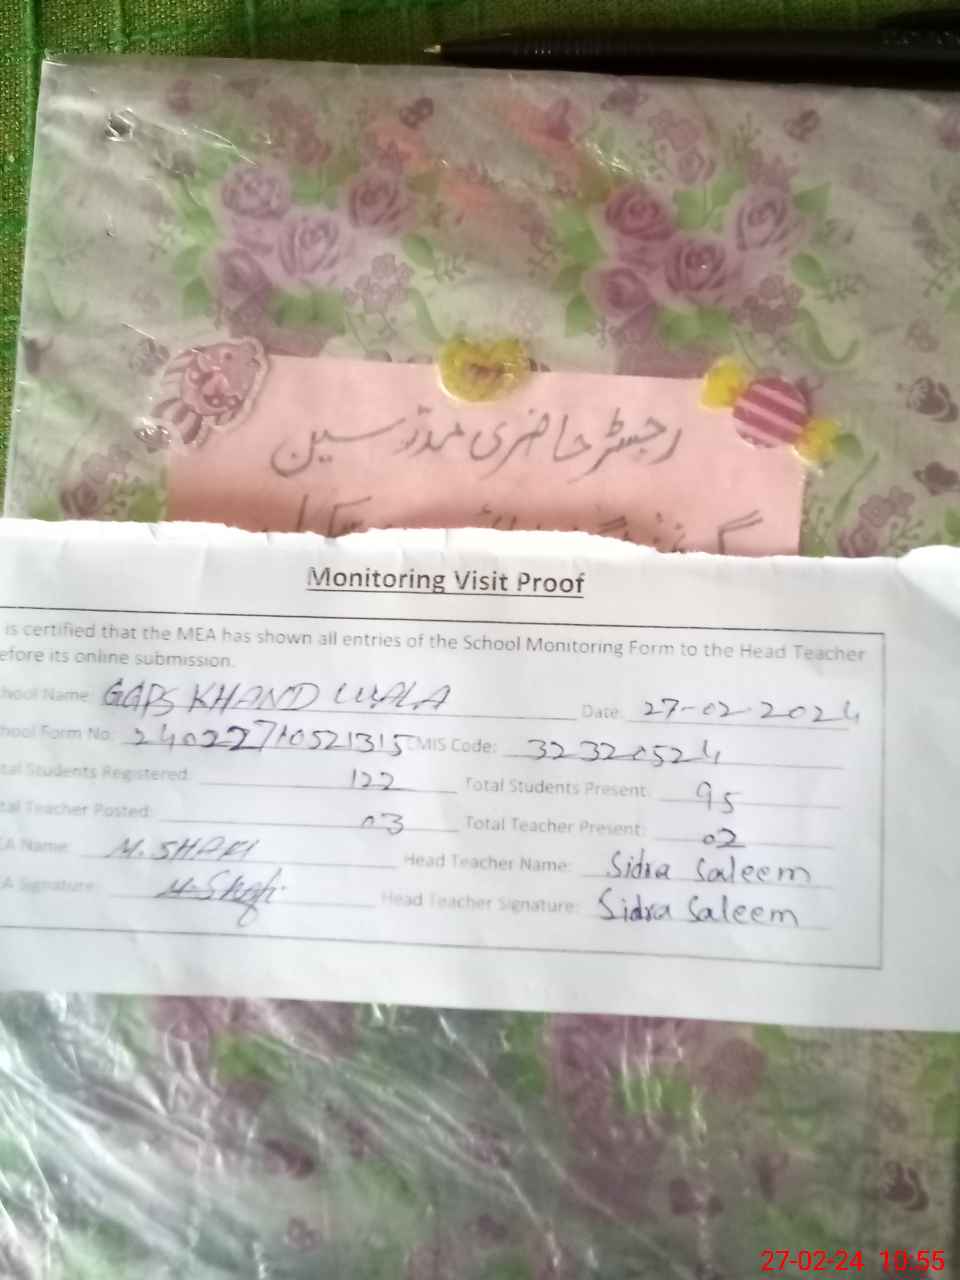 رجسٹر حاضری مدرسین
Monitoring Visit Proof
is certified that the MEA has shown all entries of the School Monitoring Form to the Head Teacher
efore its online submission.
hool Name: GGPS KHAND WALA Date: 27-02-2024
hool Form No: 24022710521315 EMIS Code: 32320524
tal Students Registered: 122 Total Students Present: 95
tal Teacher Posted: 03 Total Teacher Present: 02
EA Name: M. SHAFI Head Teacher Name: Sidra Saleem
EA Signature: M. Shafi Head Teacher Signature: Sidra Saleem
27-02-24 10:55